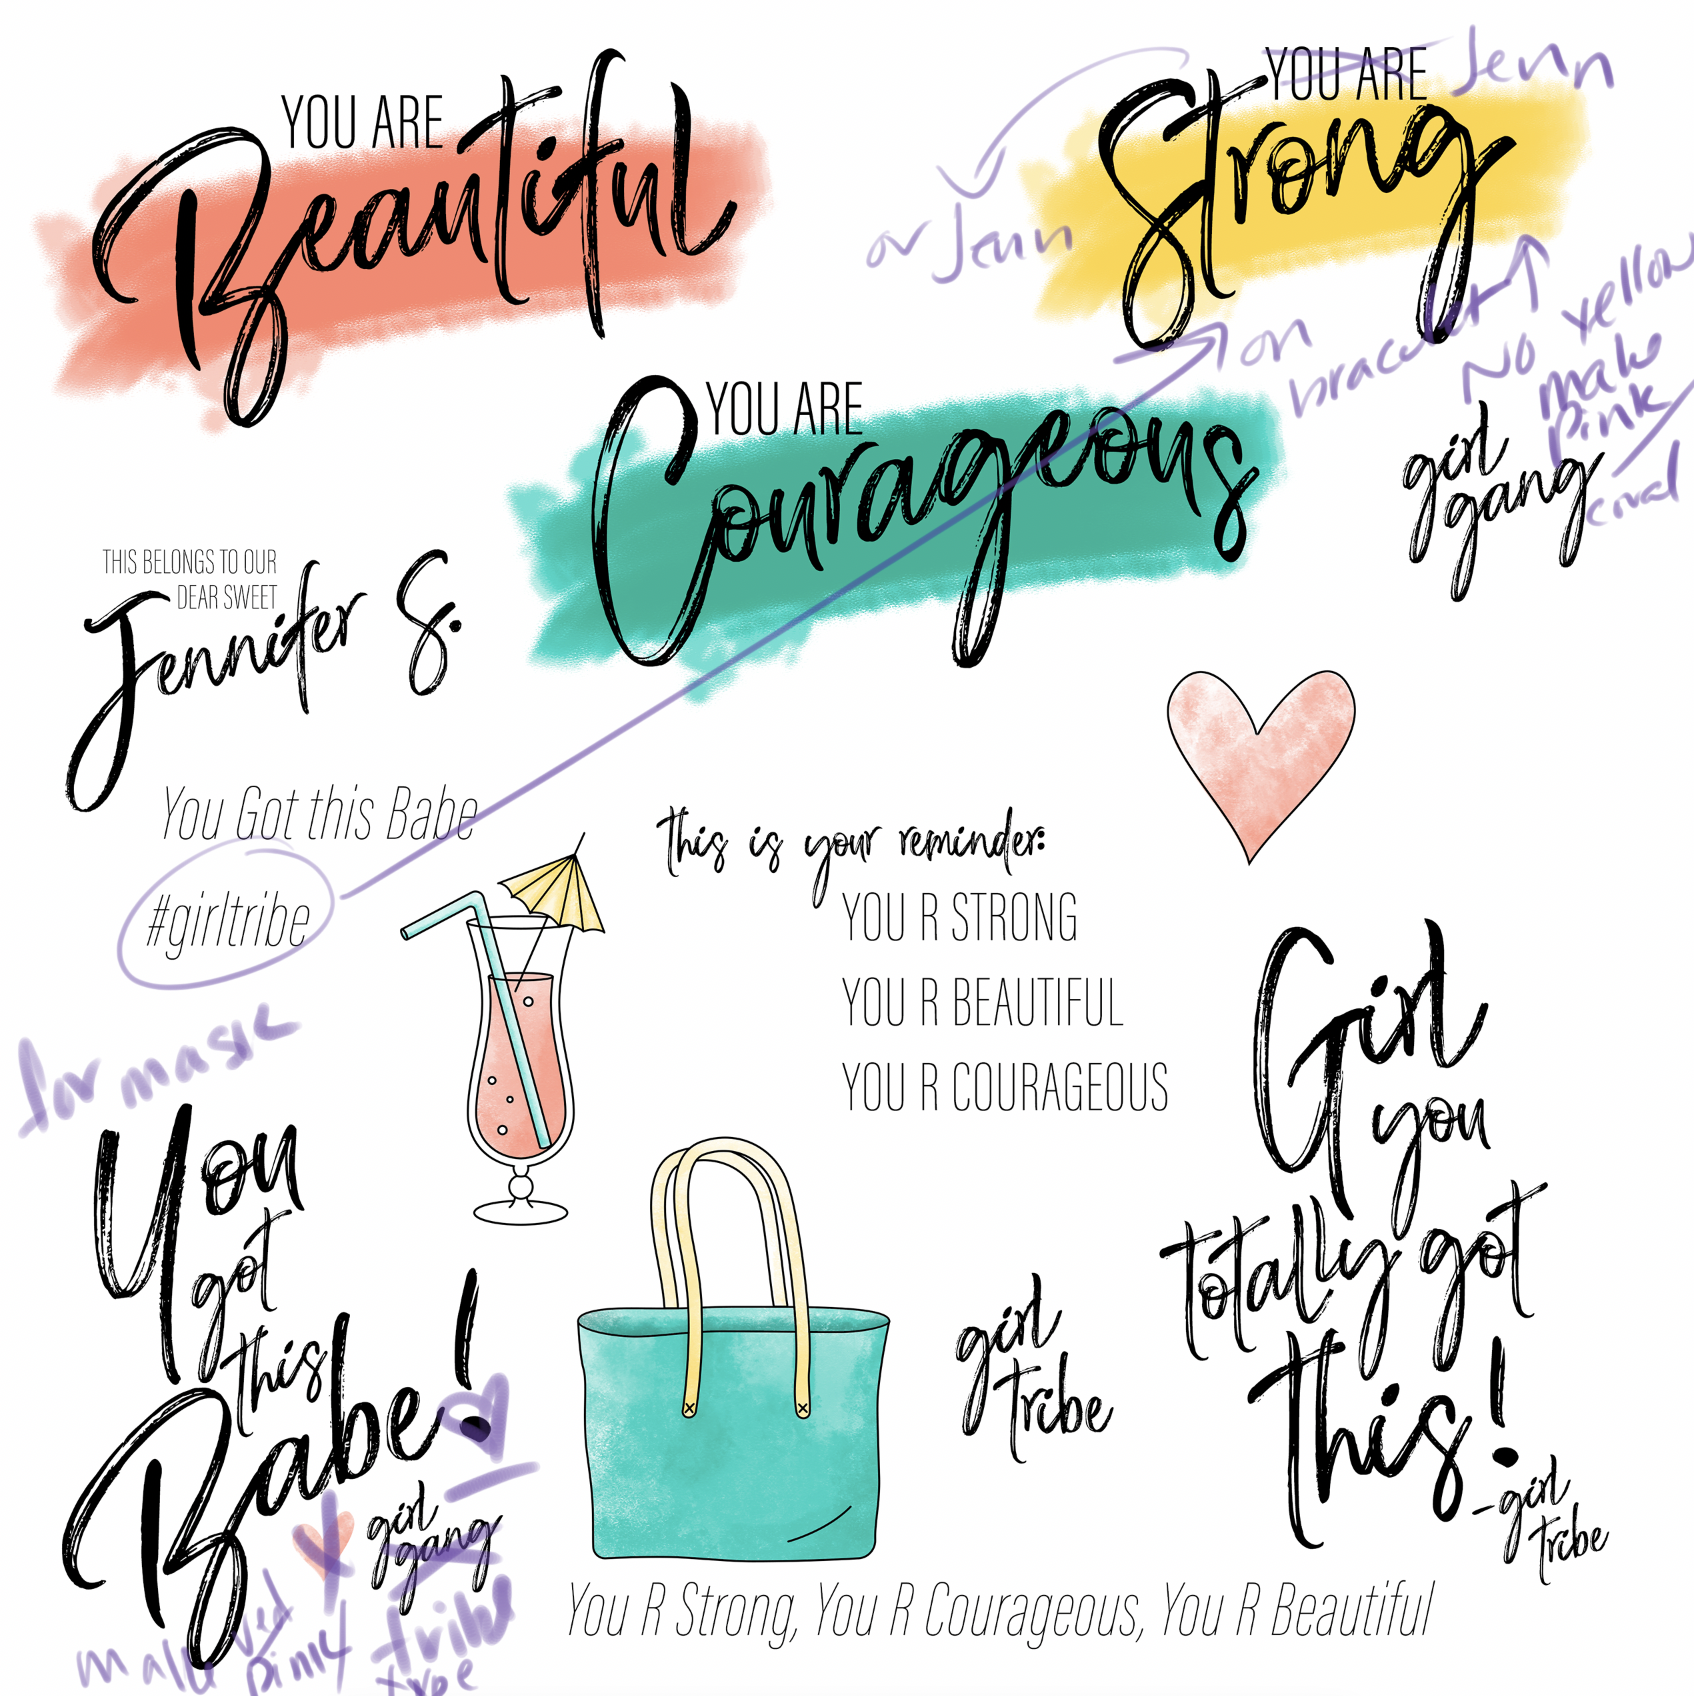 YOU ARE
Beautiful
YOU ARE Jenn
Strong
or Jenn
on
bracelet
No yellow
make
pink/
coral
YOU ARE
Courageous
girl
gang
THIS BELONGS TO OUR
DEAR SWEET
Jennifer S.
You Got this Babe
#girltribe
for mask
this is your reminder:
YOU R STRONG
YOU R BEAUTIFUL
YOU R COURAGEOUS
You
got
this
Babe!
girl
gang
make red
pink tribe
type
girl
tribe
Girl
you
totally got
this!
-girl
tribe
You R Strong, You R Courageous, You R Beautiful